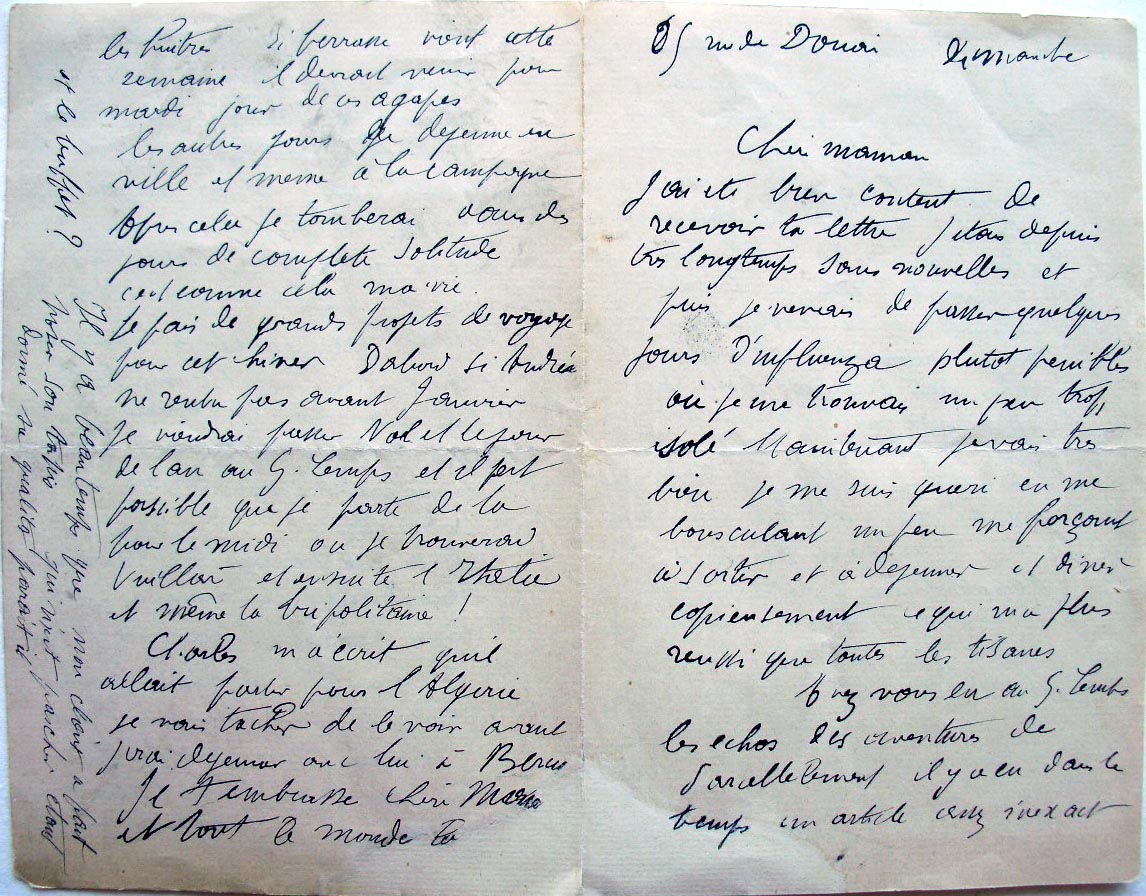 65 rue de Douai dimanche
Chère maman
J'ai ete bien content de
recevoir ta lettre J etais depuis
tres longtemps sans nouvelles et
puis je venais de passer quelques
jours d'influenza plutot penibles
où je me trouvais un peu trop
isolé Maintenant je vais tres
bien je me suis gueri en me
bousculant un peu me forçant
à sortir et à dejeuner et diner
copieusement ce qui m'a plus
reussi que toutes les tisanes
Avez vous eu au G. Lemps
les echos des aventures de
Parallelement il y a eu dans le
temps un article assez inexact
les huitres Si Terrasse vient cette
semaine il devrait venir pour
mardi jour de ces agapes
les autres jours je dejeune en
ville et meme à la campagne
Apres cela je tomberai dans des
jours de complete solitude
c'est comme cela ma vie.
Je fais de grands projets de voyage
pour cet hiver Dabord si Andrée
ne rentre pas avant Janvier
je viendrai passer Noel et le jour
de l'an au G. Lemps et il est
possible que je parte de la
pour le midi où je trouverai
Vuillard et ensuite l'Italie
et même la tripolitaine !
Charles m'a écrit qu'il
allait partir pour l'Algerie
je vais tacher de le voir avant
j'irai dejeuner avec lui à
Je t'embrasse chère Maman
et tout le monde là
Il y a beau temps que mon choix a fait
notre son tapis qui n'est pas cher étant
donné sa qualité parait il
et le buffet ?